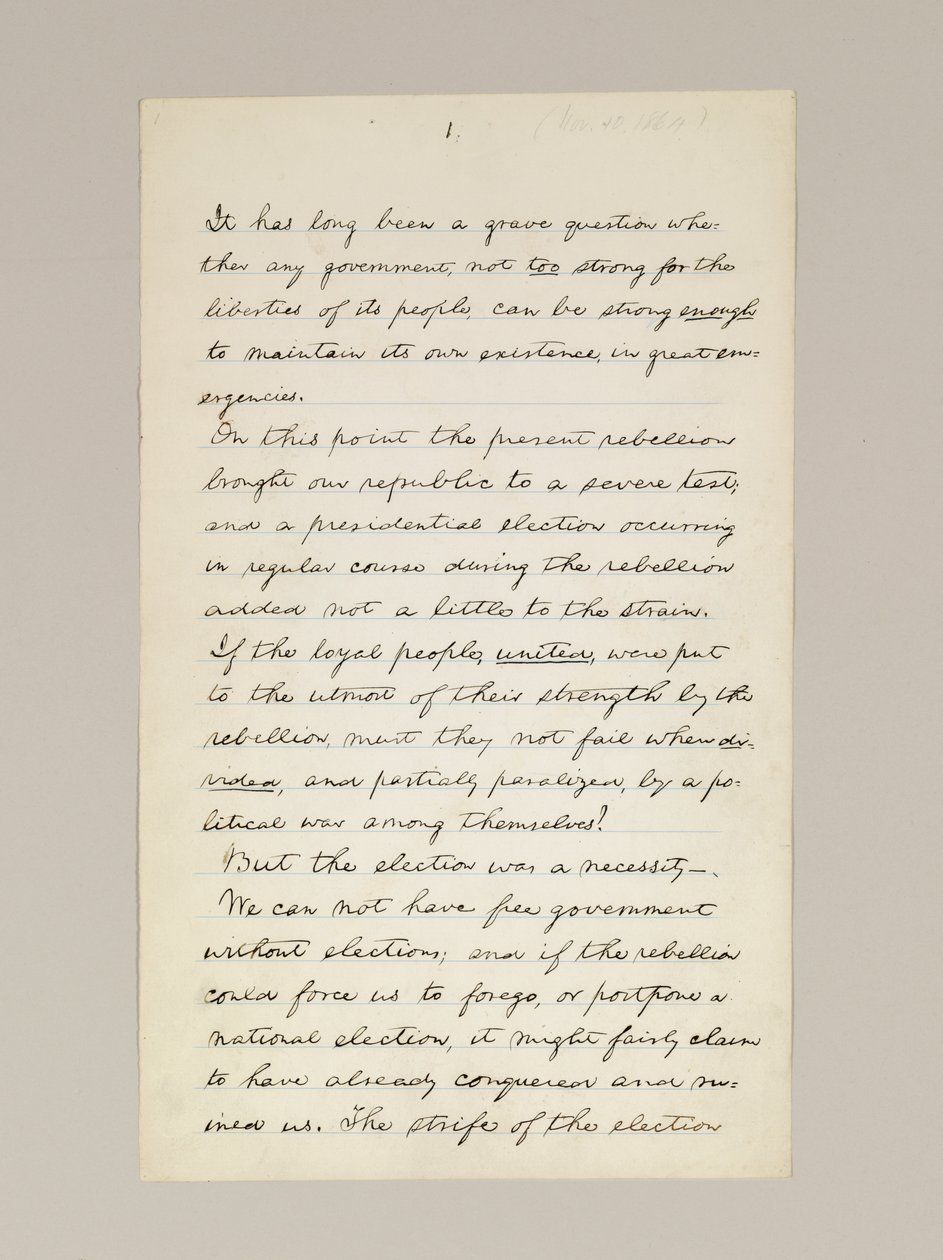 1.
(Nov. 10, 1864)
It has long been a grave question whe=
ther any government, not too strong for the
liberties of its people, can be strong enough
to maintain its own existence, in great em=
ergencies.
On this point the present rebellion
brought our republic to a severe test;
and a presidential election occurring
in regular course during the rebellion
added not a little to the strain.
If the loyal people, united, were put
to the utmost of their strength by the
rebellion, must they not fail when di=
vided, and partially paralized, by a po=
litical war among themselves?
But the election was a necessity—.
We can not have free government
without elections; and if the rebellion
could force us to forego, or postpone a
national election, it might fairly claim
to have already conquered and ru=
ined us. The strife of the election